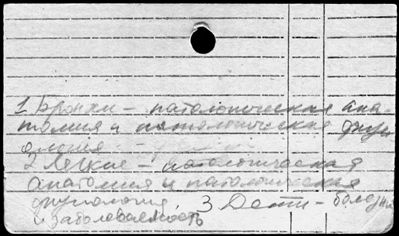 1 Бронхи – патологическая ана-
томия и патологическая физи
ология –
2 Легкие – патологическая
анатомия и патологическая
физиология, 3 Дети – болезни
и заболеваемость